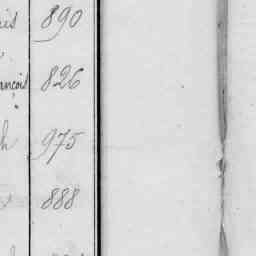 890
ançois 826
h 975
888